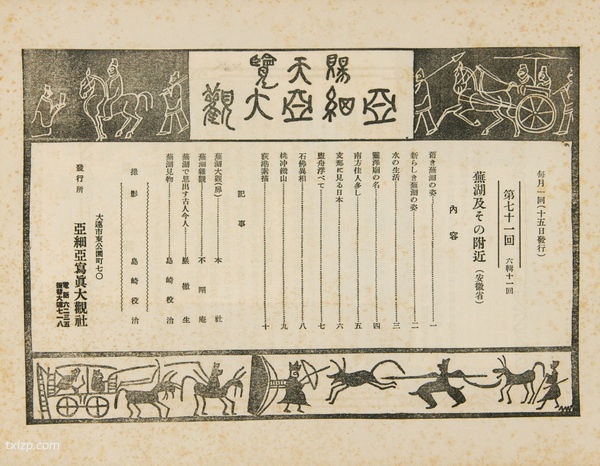 賜天覽
亞細亞大觀
毎月一回(十五日發行)
第七十一回 六輯十一回
蕪湖及その附近(安徽省)
內容
舊き蕪湖の姿 一
新らしき蕪湖の姿 二
水の生活 三
の名 四
南方住人多し 五
支那に見る日本 六
盥舟浮べて 七
石佛異相 八
桃冲鐵山 九
荻港素描 十
記事
蕪湖大觀 本社
蕪湖雜觀 不 庵
蕪湖で見出す古人今人 生
蕪湖見物 島崎役治
撮影 島崎役治
發行所
大連市東公園町七〇
亞細亞寫眞大觀社
電話六二三五
振替大連七一八
txlzp.com